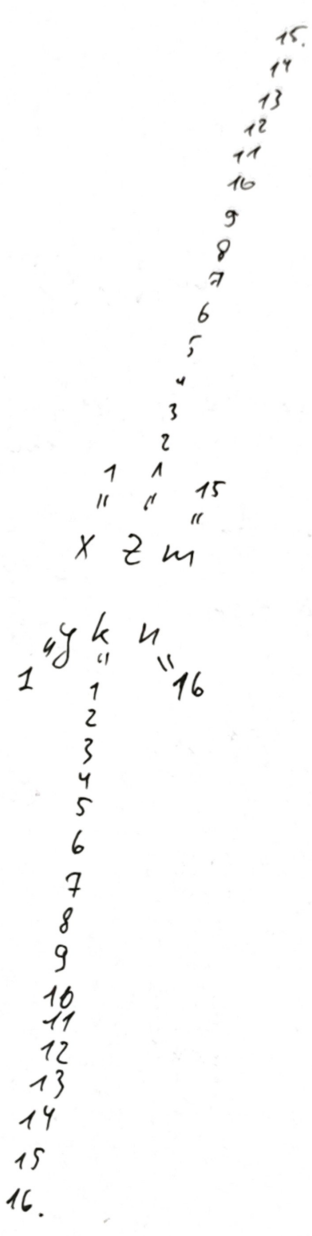 15.
14
13
12
11
10
9
8
7
6
5
4
3
2
1 1 15
" " "
x z m
y k n
" " "
1 1 16
2
3
4
5
6
7
8
9
10
11
12
13
14
15
16.